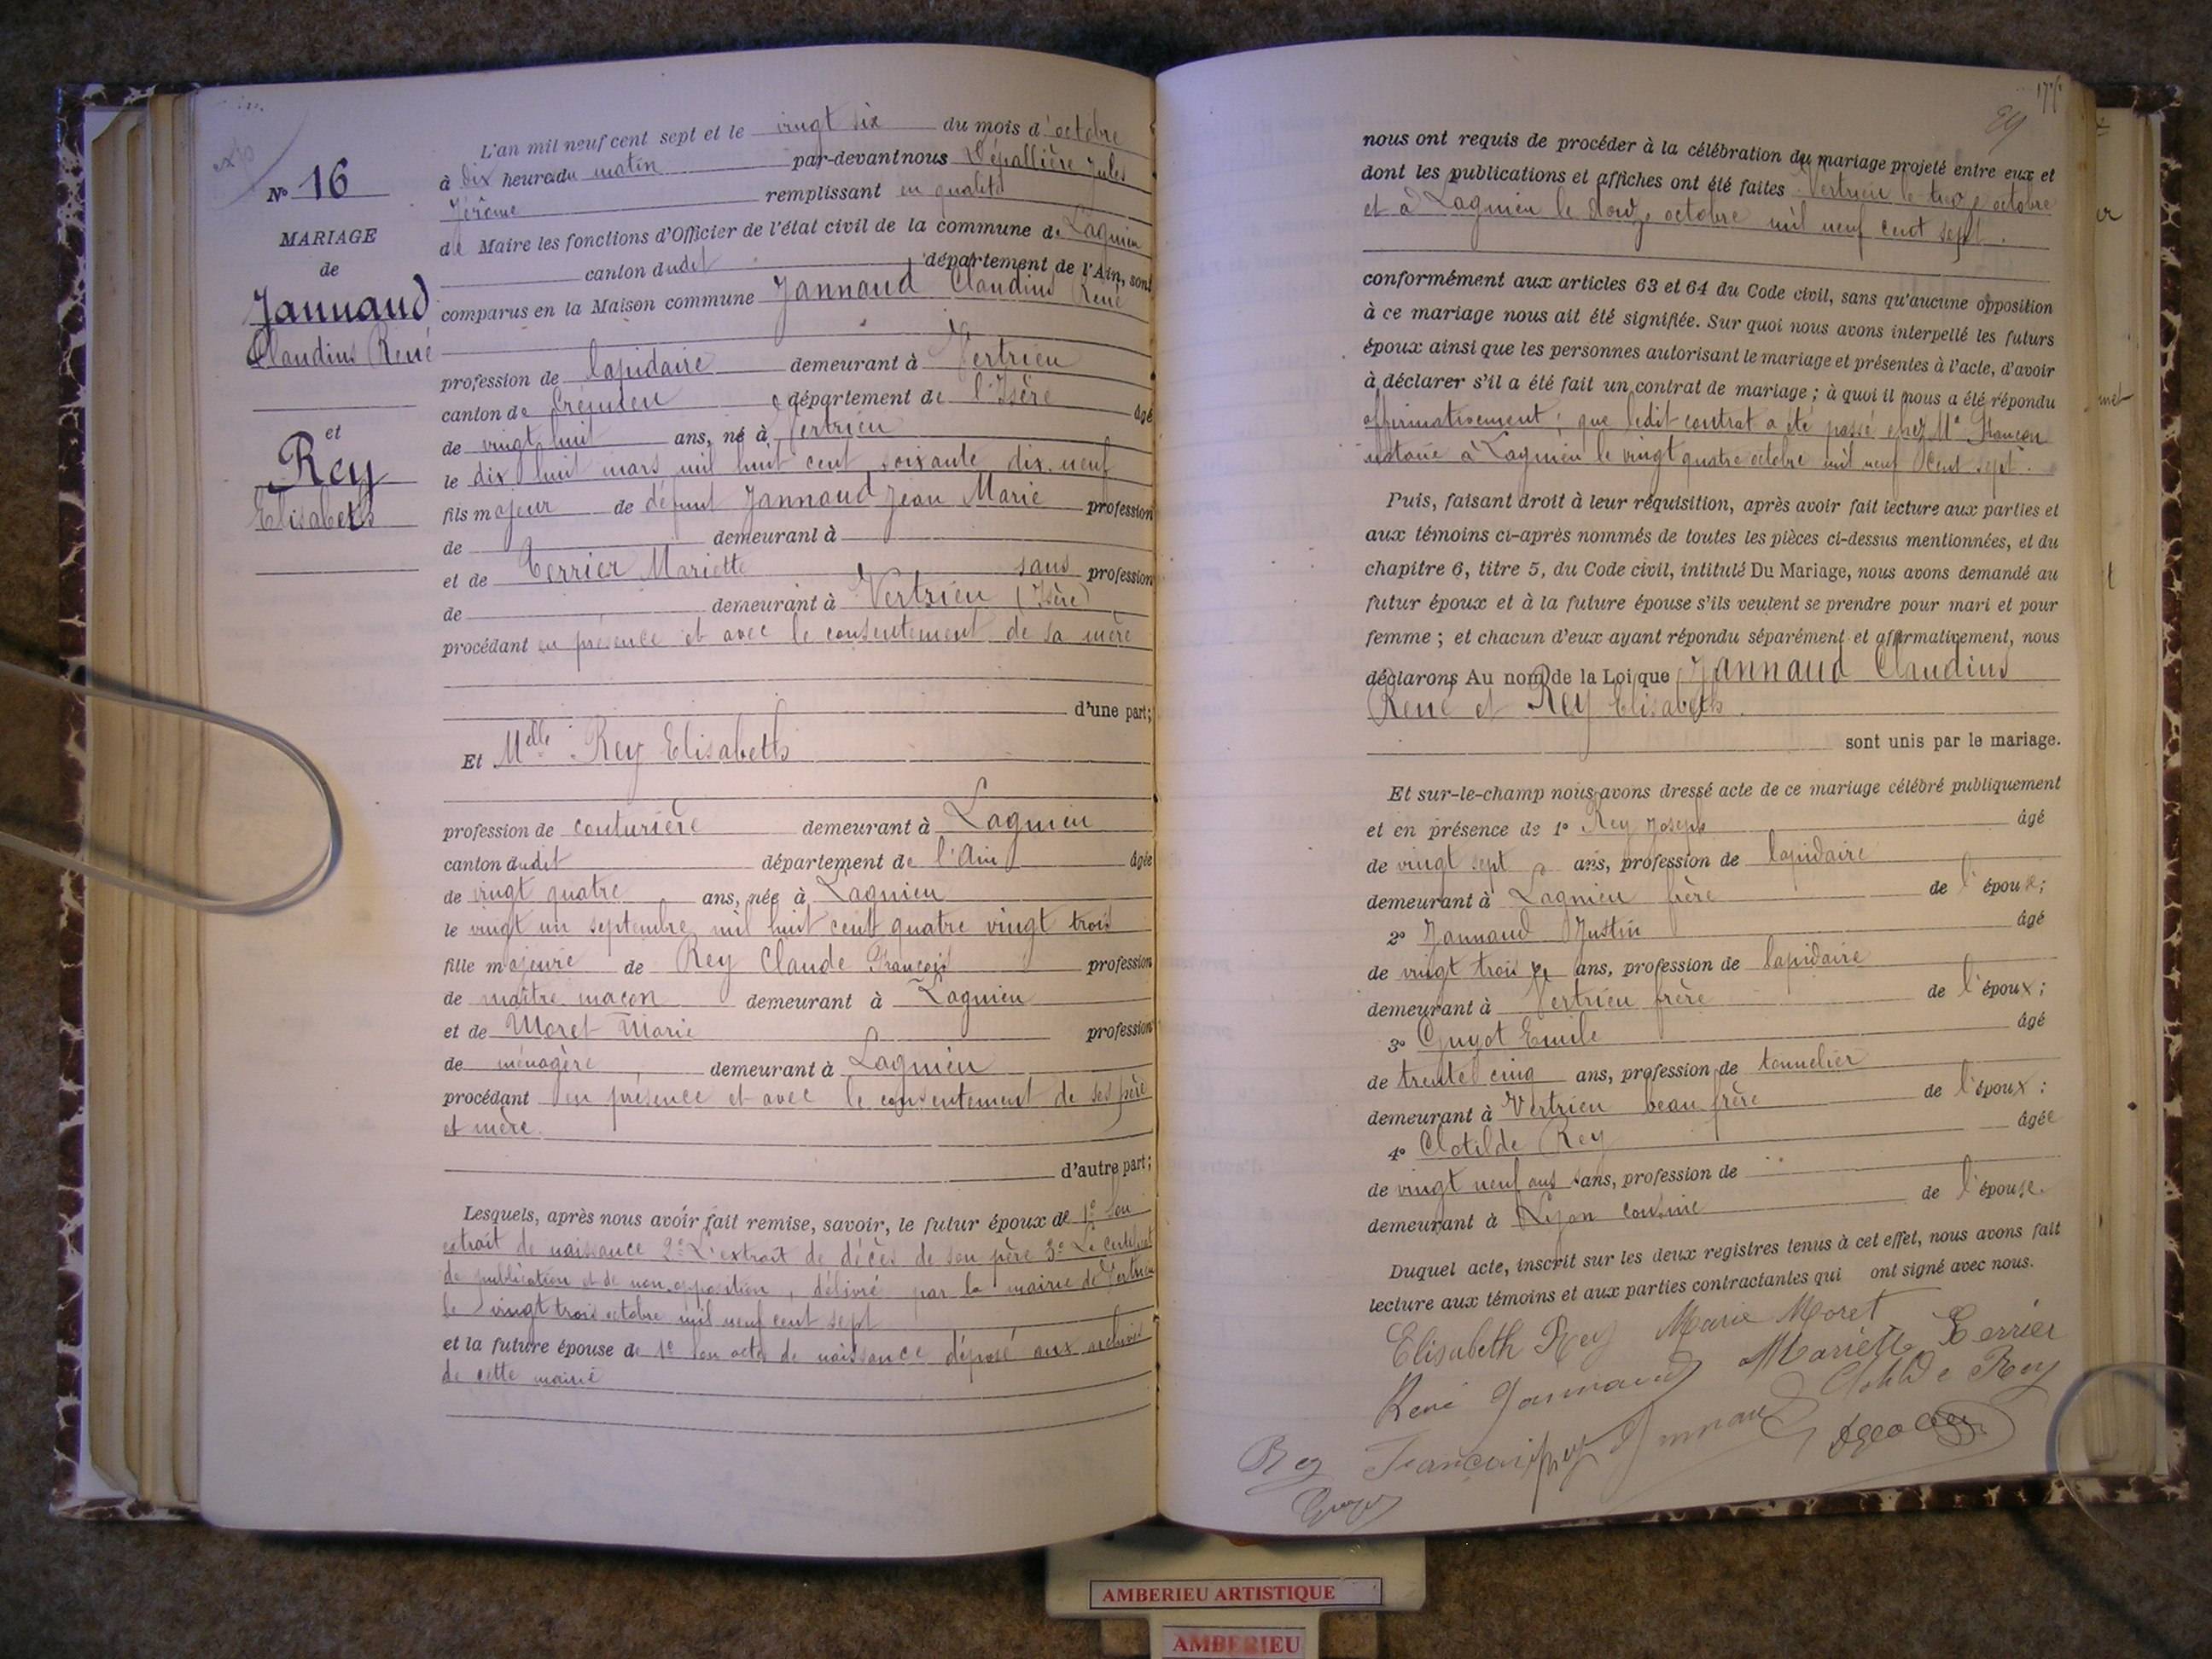 N° 16
MARIAGE
de
Jannaud
Claudius René
et
Rey
Elisabeth
L'an mil neuf cent sept et le vingt six du mois d'octobre
à dix heures du matin par-devant nous Dépallière Jules
Jérôme remplissant en qualité
de Maire les fonctions d'Officier de l'état civil de la commune de Lagnieu
canton dudit département de l'Ain, sont
comparus en la Maison commune Jannaud Claudius René
profession de lapidaire demeurant à Vertrieu
canton de Crémieu département de l'Isère âgé
de vingt huit ans, né à Vertrieu
le dix huit mars mil huit cent soixante dix neuf
fils majeur de défunt Jannaud Jean Marie profession
de demeurant à
et de Terrier Mariette sans profession
de demeurant à Vertrieu (Isère)
procédant en présence et avec le consentement de sa mère
d'une part;
Et Melle Rey Elisabeth
profession de couturière demeurant à Lagnieu
canton dudit département de l'Ain âgée
de vingt quatre ans, née à Lagnieu
le vingt un septembre mil huit cent quatre vingt trois
fille majeure de Rey Claude François profession
de maître maçon demeurant à Lagnieu
et de Moret Marie profession
de ménagère demeurant à Lagnieu
procédant en présence et avec le consentement de ses père
et mère.
d'autre part;
Lesquels, après nous avoir fait remise, savoir, le futur époux de 1° son
extrait de naissance 2° L'extrait de décès de son père 3° Le certificat
de publication et de non opposition, délivré par la mairie de Vertrieu
le vingt trois octobre mil neuf cent sept
et la future épouse de 1° son acte de naissance déposé aux archives
de cette mairie
29
nous ont requis de procéder à la célébration du mariage projeté entre eux et
dont les publications et affiches ont été faites Vertrieu le treize octobre
et à Lagnieu le douze octobre mil neuf cent sept.
conformément aux articles 63 et 64 du Code civil, sans qu'aucune opposition
à ce mariage nous ait été signifiée. Sur quoi nous avons interpellé les futurs
époux ainsi que les personnes autorisant le mariage et présentes à l'acte, d'avoir
à déclarer s'il a été fait un contrat de mariage; à quoi il nous a été répondu
affirmativement; que ledit contrat a été passé chez Me Françon
notaire à Lagnieu le vingt quatre octobre mil neuf cent sept.
Puis, faisant droit à leur réquisition, après avoir fait lecture aux parties et
aux témoins ci-après nommés de toutes les pièces ci-dessus mentionnées, et du
chapitre 6, titre 5, du Code civil, intitulé Du Mariage, nous avons demandé au
futur époux et à la future épouse s'ils veulent se prendre pour mari et pour
femme; et chacun d'eux ayant répondu séparément et affirmativement, nous
déclarons Au nom de la Loi que Jannaud Claudius
René et Rey Elisabeth.
sont unis par le mariage.
Et sur-le-champ nous avons dressé acte de ce mariage célébré publiquement
et en présence de 1° Rey Joseph âgé
de vingt sept ans, profession de lapidaire
demeurant à Lagnieu frère de l'épouse;
2° Jannaud Justin âgé
de vingt trois ans, profession de lapidaire
demeurant à Vertrieu frère de l'époux;
3° Guyot Emile âgé
de trente cinq ans, profession de tonnelier
demeurant à Vertrieu beau frère de l'époux;
4° Clotilde Rey âgée
de vingt neuf ans sans, profession de
demeurant à Lyon cousine de l'épouse.
Duquel acte, inscrit sur les deux registres tenus à cet effet, nous avons fait
lecture aux témoins et aux parties contractantes qui ont signé avec nous.
Elisabeth Rey Marie Moret
René Jannaud Mariette Terrier
Clotilde Rey
Rey François Rey Jannaud
Guyot
AMBERIEU ARTISTIQUE
AMBERIEU